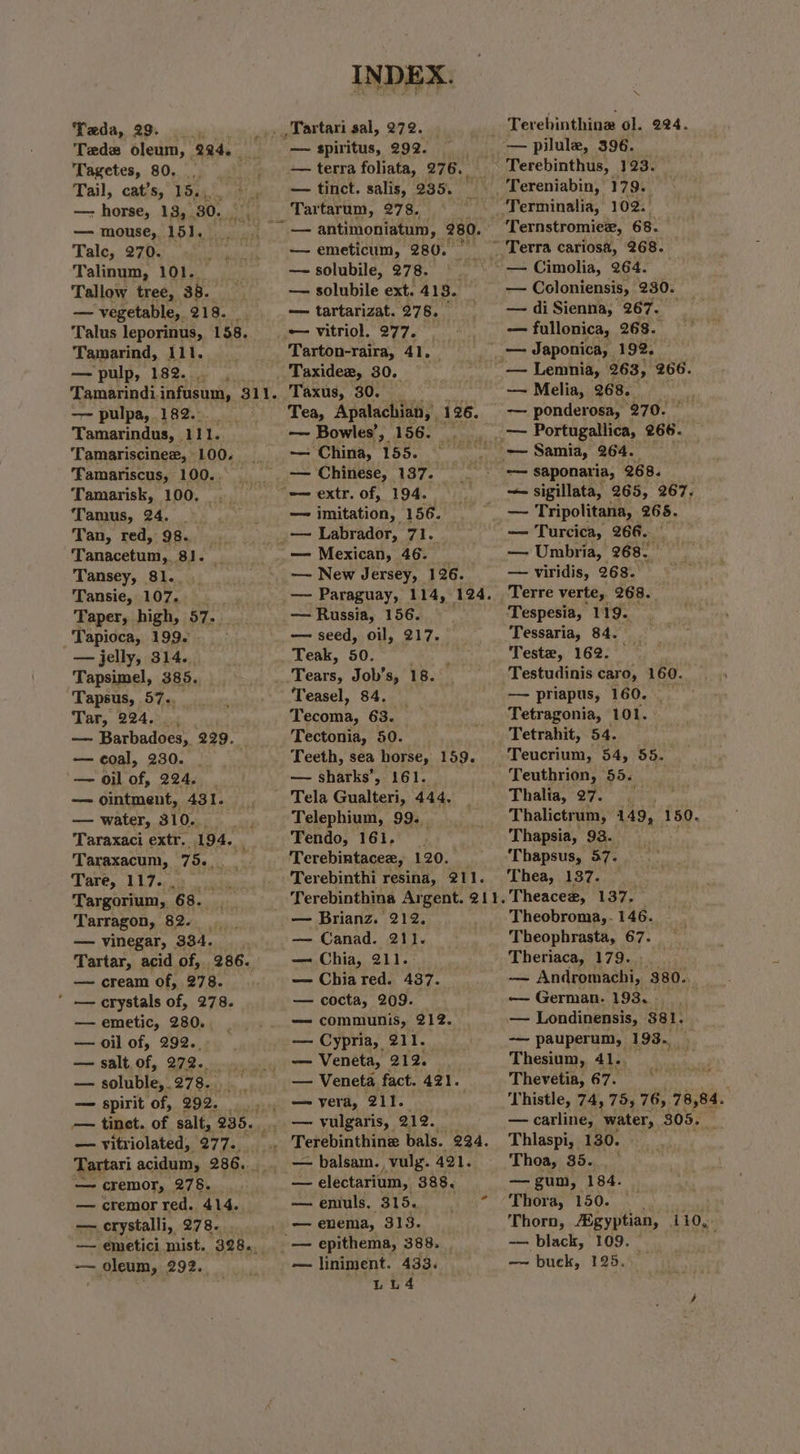 INDEX.
Tæda, 29.
Tædæ oleum, 224.
Tagetes, 80.
Tail, cat's, 15.
— horse, 13, 30.
— mouse, 151.
Talc, 270.
Talinum, 101.
Tallow tree, 38.
— vegetable, 218.
Talus leporinus, 158.
Tamarind, 111.
— pulp, 182.
Tamarindi infusum, 311.
— pulpa, 182.
Tamarindus, 111.
Tamariscineæ, 100.
Tamariscus, 100.
Tamarisk, 100.
Tamus, 24.
Tan, red, 98.
Tanacetum, 81.
Tansey, 81.
Tansie, 107.
Taper, high, 57.
Tapioca, 199.
— jelly, 314.
Tapsimel, 385.
Tapsus, 57.
Tar, 224.
— Barbadoes, 229.
— coal, 230.
— oil of, 224.
— ointment, 431.
— water, 310.
Taraxaci extr. 194.
Taraxacum, 75.
Tare, 117.
Targorium, 68.
Tarragon, 82.
— vinegar, 334.
Tartar, acid of, 286.
— cream of, 278.
— crystals of, 278.
— emetic, 280.
— oil of, 292.
— salt of, 272.
— soluble, 278.
— spirit of, 292.
— tinct. of salt, 235.
— vitriolated, 277.
Tartari acidum, 286.
— cremor, 278.
— cremor red. 414.
— crystalli, 278.
— emetici mist. 328.
— oleum, 292.
Tartari sal, 272.
— spiritus, 292.
— terra foliata, 276.
— tinct. salis, 235.
Tartarum, 278.
— antimoniatum, 280.
— emeticum, 280.
— solubile, 278.
— solubile ext. 413.
— tartarizat. 278.
— vitriol. 277.
Tarton-raira, 41.
Taxideæ, 30.
Taxus, 30.
Tea, Apalachian, 126.
— Bowles', 156.
— China, 155.
— Chinese, 137.
— extr. of, 194.
— imitation, 156.
— Labrador, 71.
— Mexican, 46.
— New Jersey, 126.
— Paraguay, 114, 124.
— Russia, 156.
— seed, oil, 217.
Teak, 50.
Tears, Job's, 18.
Teasel, 84.
Tecoma, 63.
Tectonia, 50.
Teeth, sea horse, 159.
— sharks', 161.
Tela Gualteri, 444.
Telephium, 99.
Tendo, 161.
Terebintaceæ, 120.
Terebinthi resina, 211.
Terebinthina Argent. 211.
— Brianz. 212.
— Canad. 211.
— Chia, 211.
— Chia red. 437.
— cocta, 209.
— communis, 212.
— Cypria, 211.
— Veneta, 212.
— Veneta fact. 421.
— vera, 211.
— vulgaris, 212.
Terebinthinæ bals. 224.
— balsam. vulg. 421.
— electarium, 388.
— emuls. 315.
— enema, 313.
— epithema, 388.
— liniment. 433.
Terebinthinæ ol. 224.
— pilulæ, 396.
Terebinthus, 123.
Tereniabin, 179.
Terminalia, 102.
Ternstromieæ, 68.
Terra cariosa, 268.
— Cimolia, 264.
— Coloniensis, 230.
— di Sienna, 267.
— fullonica, 268.
— Japonica, 192.
— Lemnia, 263, 266.
— Melia, 268.
— ponderosa, 270.
— Portugallica, 266.
— Samia, 264.
— saponaria, 268.
— sigillata, 265, 267.
— Tripolitana, 265.
— Turcica, 266.
— Umbria, 268.
— viridis, 268.
Terre verte, 268.
Tespesia, 119.
Tessaria, 84.
Testæ, 162.
Testudinis caro, 160.
— priapus, 160.
Tetragonia, 101.
Tetrahit, 54.
Teucrium, 54, 55.
Teuthrion, 55.
Thalia, 27.
Thalictrum, 149, 150.
Thapsia, 93.
Thapsus, 57.
Thea, 137.
Theaceæ, 137.
Theobroma, 146.
Theophrasta, 67.
Theriaca, 179.
— Andromachi, 380.
— German. 193.
— Londinensis, 381.
— pauperum, 193.
Thesium, 41.
Thevetia, 67.
Thistle, 74, 75, 76, 78, 84.
— carline, water, 305.
Thlaspi, 130.
Thoa, 35.
— gum, 184.
Thora, 150.
Thorn, Ægyptian, 110.
— black, 109.
— buck, 125.
L L 4